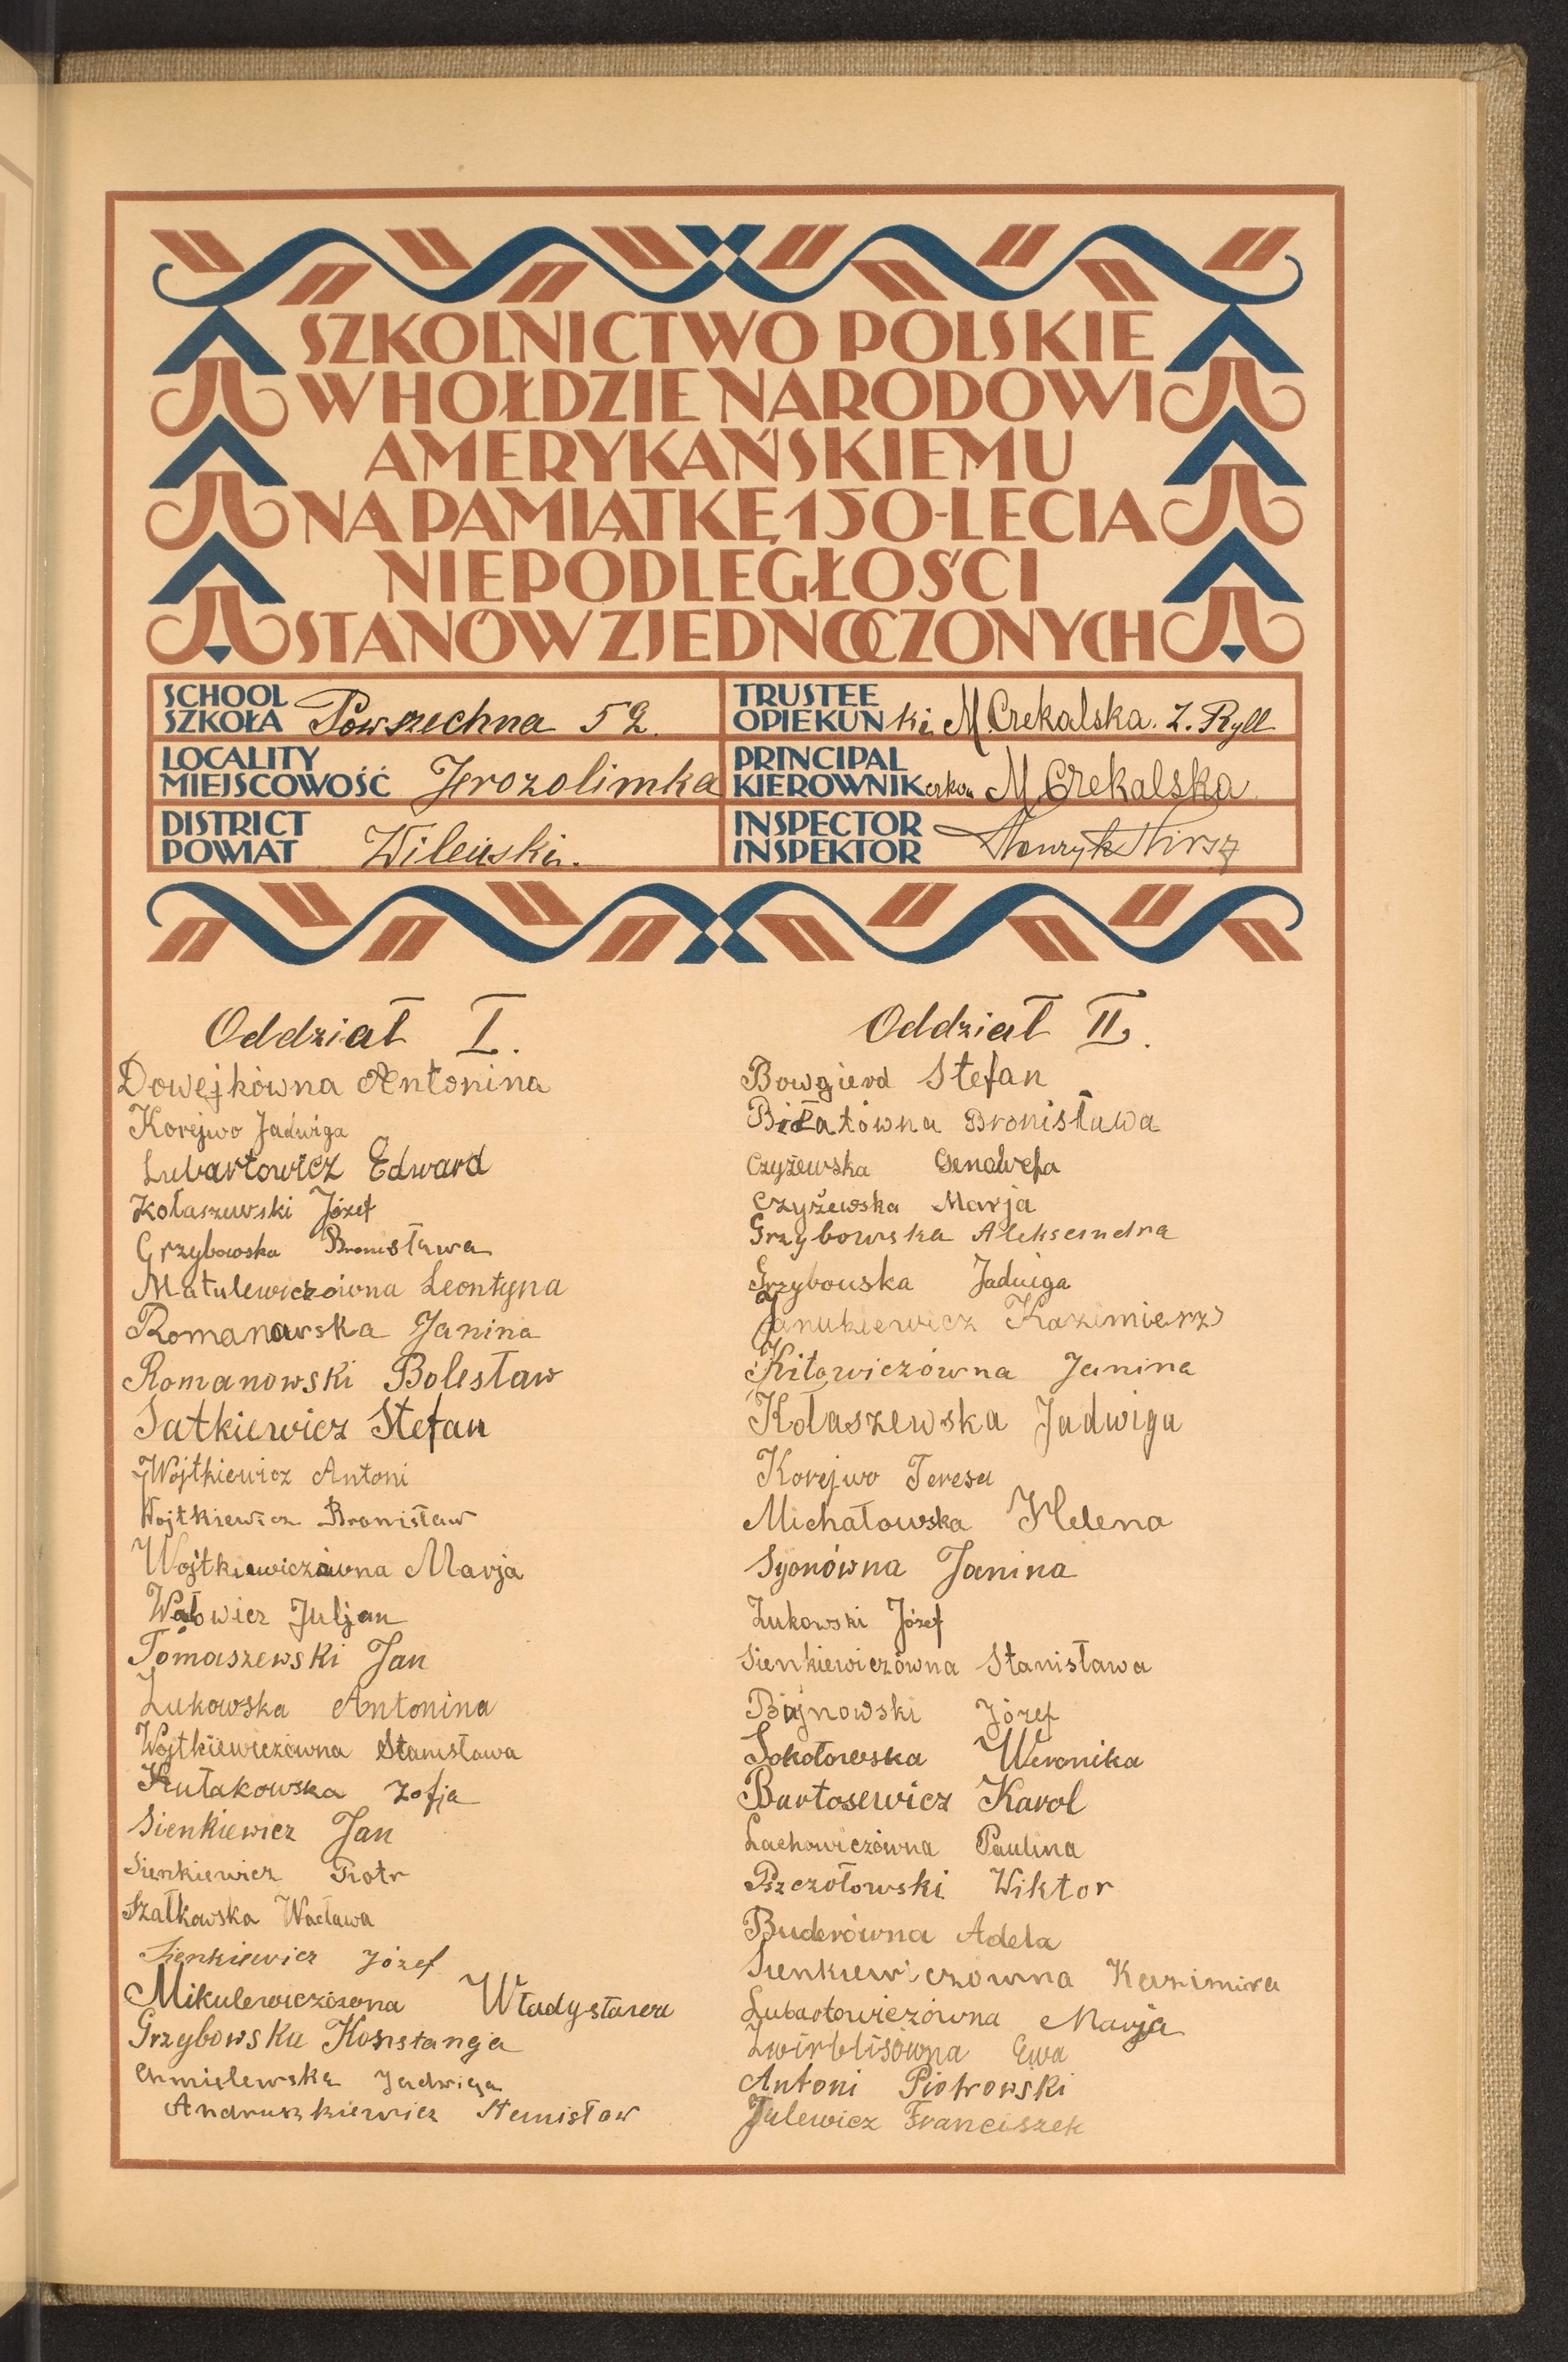 SZKOLNICTWO POLSKIE
W HOŁDZIE NARODOWI
AMERYKAŃSKIEMU
NA PAMIĄTKĘ 150-LECIA
NIEPODLEGŁOŚCI
STANÓW ZJEDNOCZONYCH
SCHOOL
SZKOŁA Powszechna 52.
LOCALITY
MIEJSCOWOŚĆ Jerozolimka
DISTRICT
POWIAT Wileński.
TRUSTEE
OPIEKUN ki M. Czekalska. Z. Ryll
PRINCIPAL
KIEROWNIK M. Czekalska
INSPECTOR
INSPEKTOR Henryk
Oddział I.
Dowejkówna Antonina
Korejwo Jadwiga
Lubartowicz Edward
Kołaszewski Józef
Grzybowska Bronisława
Matulewiczówna Leontyna
Romanowska Janina
Romanowski Bolesław
Satkiewicz Stefan
Wojtkiewicz Antoni
Wojtkiewicz Bronisław
Wojtkiewiczówna Marja
Juljan
Tomaszewski Jan
Żukowska Antonina
Wojtkiewiczówna Stanisława
Kułakowska Zofja
Sienkiewicz Jan
Sienkiewicz Piotr
Szałkowska Wacława
Sienkiewicz Józef
Mikulewiczówna Władysława
Grzybowska Konstancja
Chmielewska Jadwiga
Andruszkiewicz Stanisław
Oddział II.
Bowgierd Stefan
Bronisława
Czyżewska Genowefa
Czyżewska Marja
Grzybowska Aleksandra
Grzybowska Jadwiga
Janukiewicz Kazimierz
Kitowiczówna Janina
Kołaszewska Jadwiga
Korejwo Teresa
Michałowska Helena
Syonówna Janina
Żukowski Józef
Sienkiewiczówna Stanisława
Bujnowski Józef
Sokołowska Weronika
Bartosewicz Karol
Lachowiczówna Paulina
Pszczołowski Wiktor
Buderówna Adela
Sienkiewiczówna Kazimira
Lubartowiczówna Marja
Żwirblisówna Ewa
Antoni Piotrowski
Julewicz Franciszek